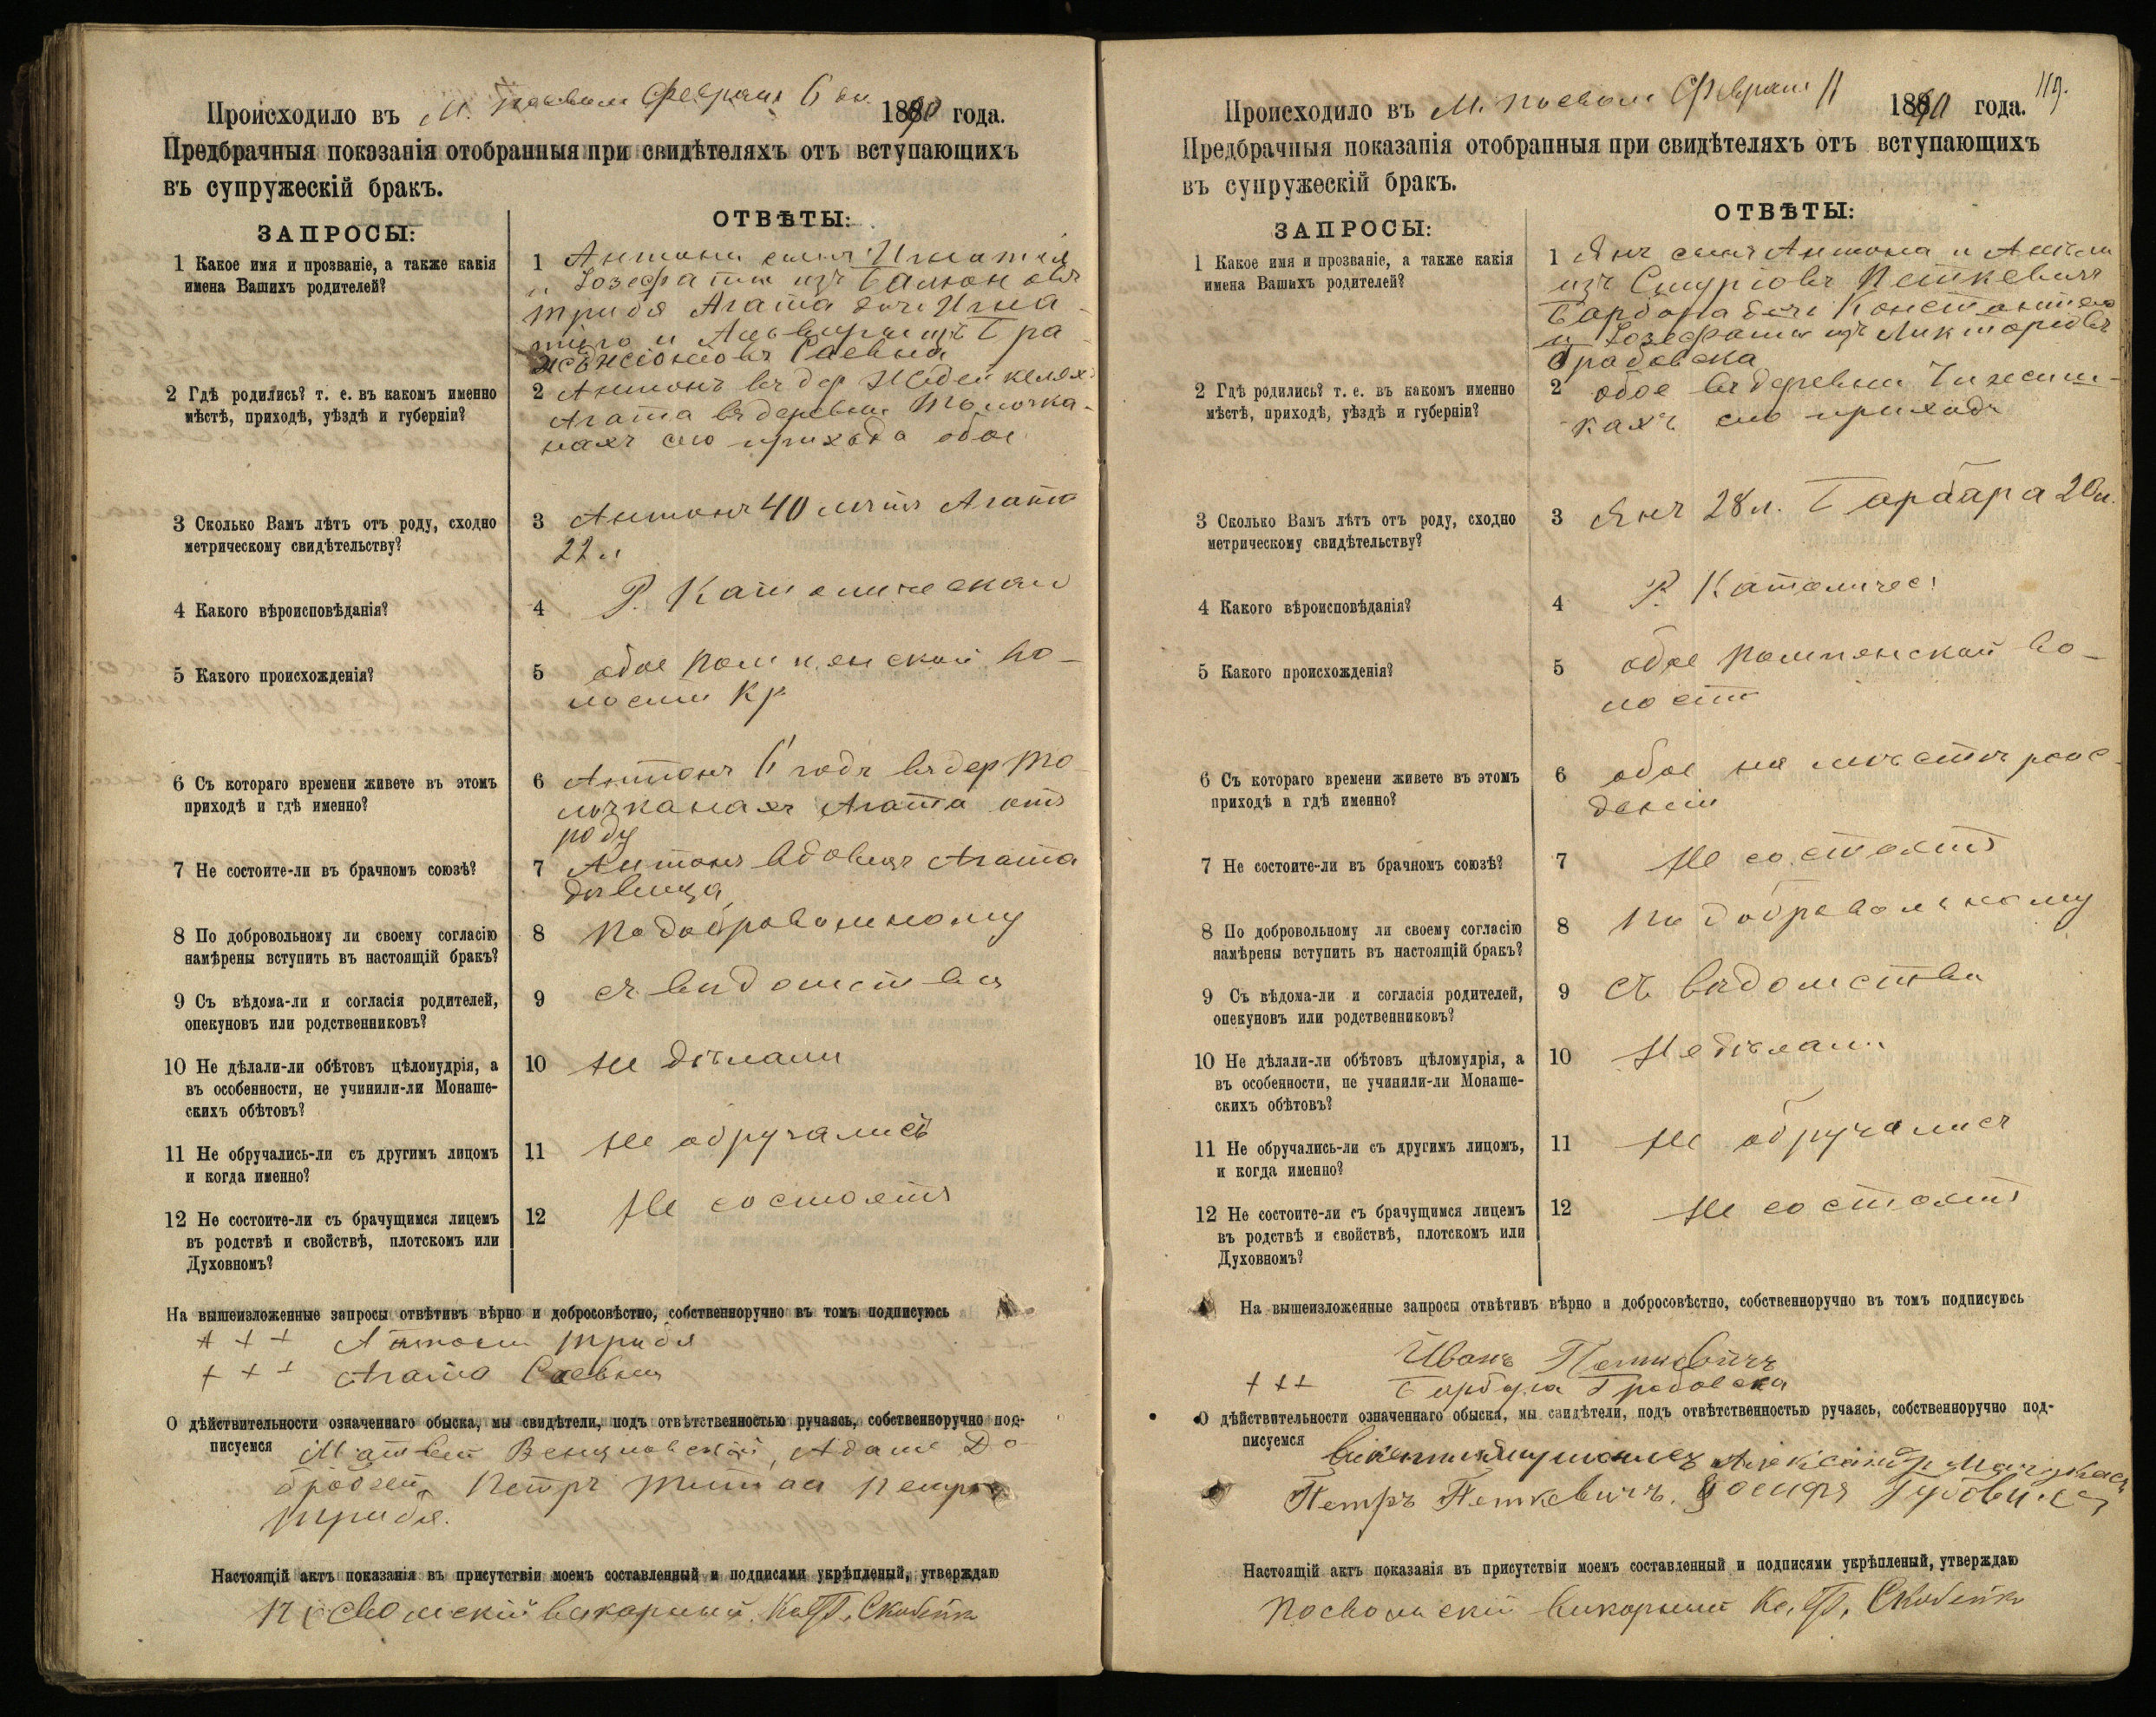 Происходило въ м. Посволи Февраля 6 дн. 1890 года.
Предбрачныя показанія отобранныя при свидѣтеляхъ отъ вступающихъ
въ супружескій бракъ.
ЗАПРОСЫ:
ОТВѢТЫ:
1 Какое имя и прозваніе, а также какія
имена Вашихъ родителей?
1 Антони сынъ Игнатія
и Іозефаты изъ
Триба Агата дочь Игна-
тіго и изъ Гра-
Саевна
2 Гдѣ родились? т. е. въ какомъ именно
мѣстѣ, приходѣ, уѣздѣ и губерніи?
2 Антонъ въ дер
Агата въ деревни Толочка-
нахъ сего прихода обое
3 Сколько Вамъ лѣтъ отъ роду, сходно
метрическому свидѣтельству?
3 Антонъ 40 лѣтъ Агата
22 л
4 Какого вѣроисповѣданія?
4 Р. Католическаго
5 Какого происхожденія?
5 обое Помпянской во-
лости Кр
6 Съ котораго времени живете въ этомъ
приходѣ и гдѣ именно?
6 Антонъ 6 годъ въ дер То-
лочканахъ Агата отъ
роду
7 Не состоите-ли въ брачномъ союзѣ?
7 Антонъ вдовецъ Агата
дѣвица
8 По добровольному ли своему согласію
намѣрены вступить въ настоящій бракъ?
8 По добровольному
9 Съ вѣдома-ли и согласія родителей,
опекуновъ или родственниковъ?
9 съ видомства
10 Не дѣлали-ли обѣтовъ цѣломудрія, а
въ особенности, не учинили-ли Монаше-
скихъ обѣтовъ?
10 Не дѣлали
11 Не обручались-ли съ другимъ лицомъ
и когда именно?
11 Не обручались
12 Не состоите-ли съ брачущимся лицемъ
въ родствѣ и свойствѣ, плотскомъ или
Духовномъ?
12 Не состоятъ
На вышеизложенные запросы отвѣтивъ вѣрно и добросовѣстно, собственноручно въ томъ подписуюсь
+ + + Антони Триба
+ + + Агата Саевна
О дѣйствительности означеннаго обыска, мы свидѣтели, подъ отвѣтственностью ручаясь, собственноручно под-
писуемся Матвей Венцловскій, Адамъ До-
Петръ Титас Петръ
Триба.
Настоящій актъ показанія въ присутствіи моемъ составленный и подписями укрѣпленый, утверждаю
Посвольскій викарный Кс. Скобейко
119.
Происходило въ м. Посволи Февраля 11 1890 года.
Предбрачныя показанія отобранныя при свидѣтеляхъ отъ вступающихъ
въ супружескій бракъ.
ЗАПРОСЫ:
ОТВѢТЫ:
1 Какое имя и прозваніе, а также какія
имена Вашихъ родителей?
1 Янъ сынъ Антона и
изъ Петкевичъ
Барбара дочь Константего
и Іозефаты изъ
Грабовска
2 Гдѣ родились? т. е. въ какомъ именно
мѣстѣ, приходѣ, уѣздѣ и губерніи?
2 обое въ деревни
кахъ сего прихода
3 Сколько Вамъ лѣтъ отъ роду, сходно
метрическому свидѣтельству?
3 Янъ 28 л. Барбара 20 л.
4 Какого вѣроисповѣданія?
4 Р. Католичес
5 Какого происхожденія?
5 обое Помпянской во-
лости
6 Съ котораго времени живете въ этомъ
приходѣ и гдѣ именно?
6 обое на мѣстѣ рож-
деніи
7 Не состоите-ли въ брачномъ союзѣ?
7 Не состоятъ
8 По добровольному ли своему согласію
намѣрены вступить въ настоящій бракъ?
8 По добровольному
9 Съ вѣдома-ли и согласія родителей,
опекуновъ или родственниковъ?
9 Съ вѣдомства
10 Не дѣлали-ли обѣтовъ цѣломудрія, а
въ особенности, не учинили-ли Монаше-
скихъ обѣтовъ?
10 Не дѣлали
11 Не обручались-ли съ другимъ лицомъ,
и когда именно?
11 Не обручались
12 Не состоите-ли съ брачущимся лицемъ
въ родствѣ и свойствѣ, плотскомъ или
Духовномъ?
12 Не состоятъ
На вышеизложенные запросы отвѣтивъ вѣрно и добросовѣстно, собственноручно въ томъ подписуюсь
Иванъ Петкевичъ
+ + + Барбара Грабовска
О дѣйствительности означеннаго обыска, мы свидѣтели, подъ отвѣтственностью ручаясь, собственноручно под-
писуемся Александр
Петръ Петкевичъ.
Настоящій актъ показанія въ присутствіи моемъ составленный и подписями укрѣпленый, утверждаю
Посвольскій викарный Кс. Скобейко